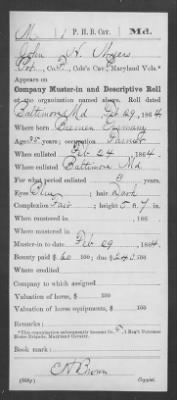 M | P. H. B. Cav. | Md.
John H. Myers
Pvt., Co. F, Cole's Cav., Maryland Vols.*
Appears on
Company Muster-in and Descriptive Roll
of the organization named above. Roll dated
Baltimore Md Feb 29, 1864
Where born Bremen Germany
Age 35 years; occupation
When enlisted Feb 24, 1864
Where enlisted Baltimore Md
For what period enlisted 3 years.
Eyes Blue; hair Dark
Complexion Fair; height 5 ft. 7 in.
When mustered in , 186
Where mustered in
Muster-in to date Feb 29, 1864
Bounty paid $60 /100; due $240 /100
Where credited
Company to which assigned
Valuation of horse, $ /100
Valuation of horse equipments, $ /100
Remarks:
Book mark:
Copyist.